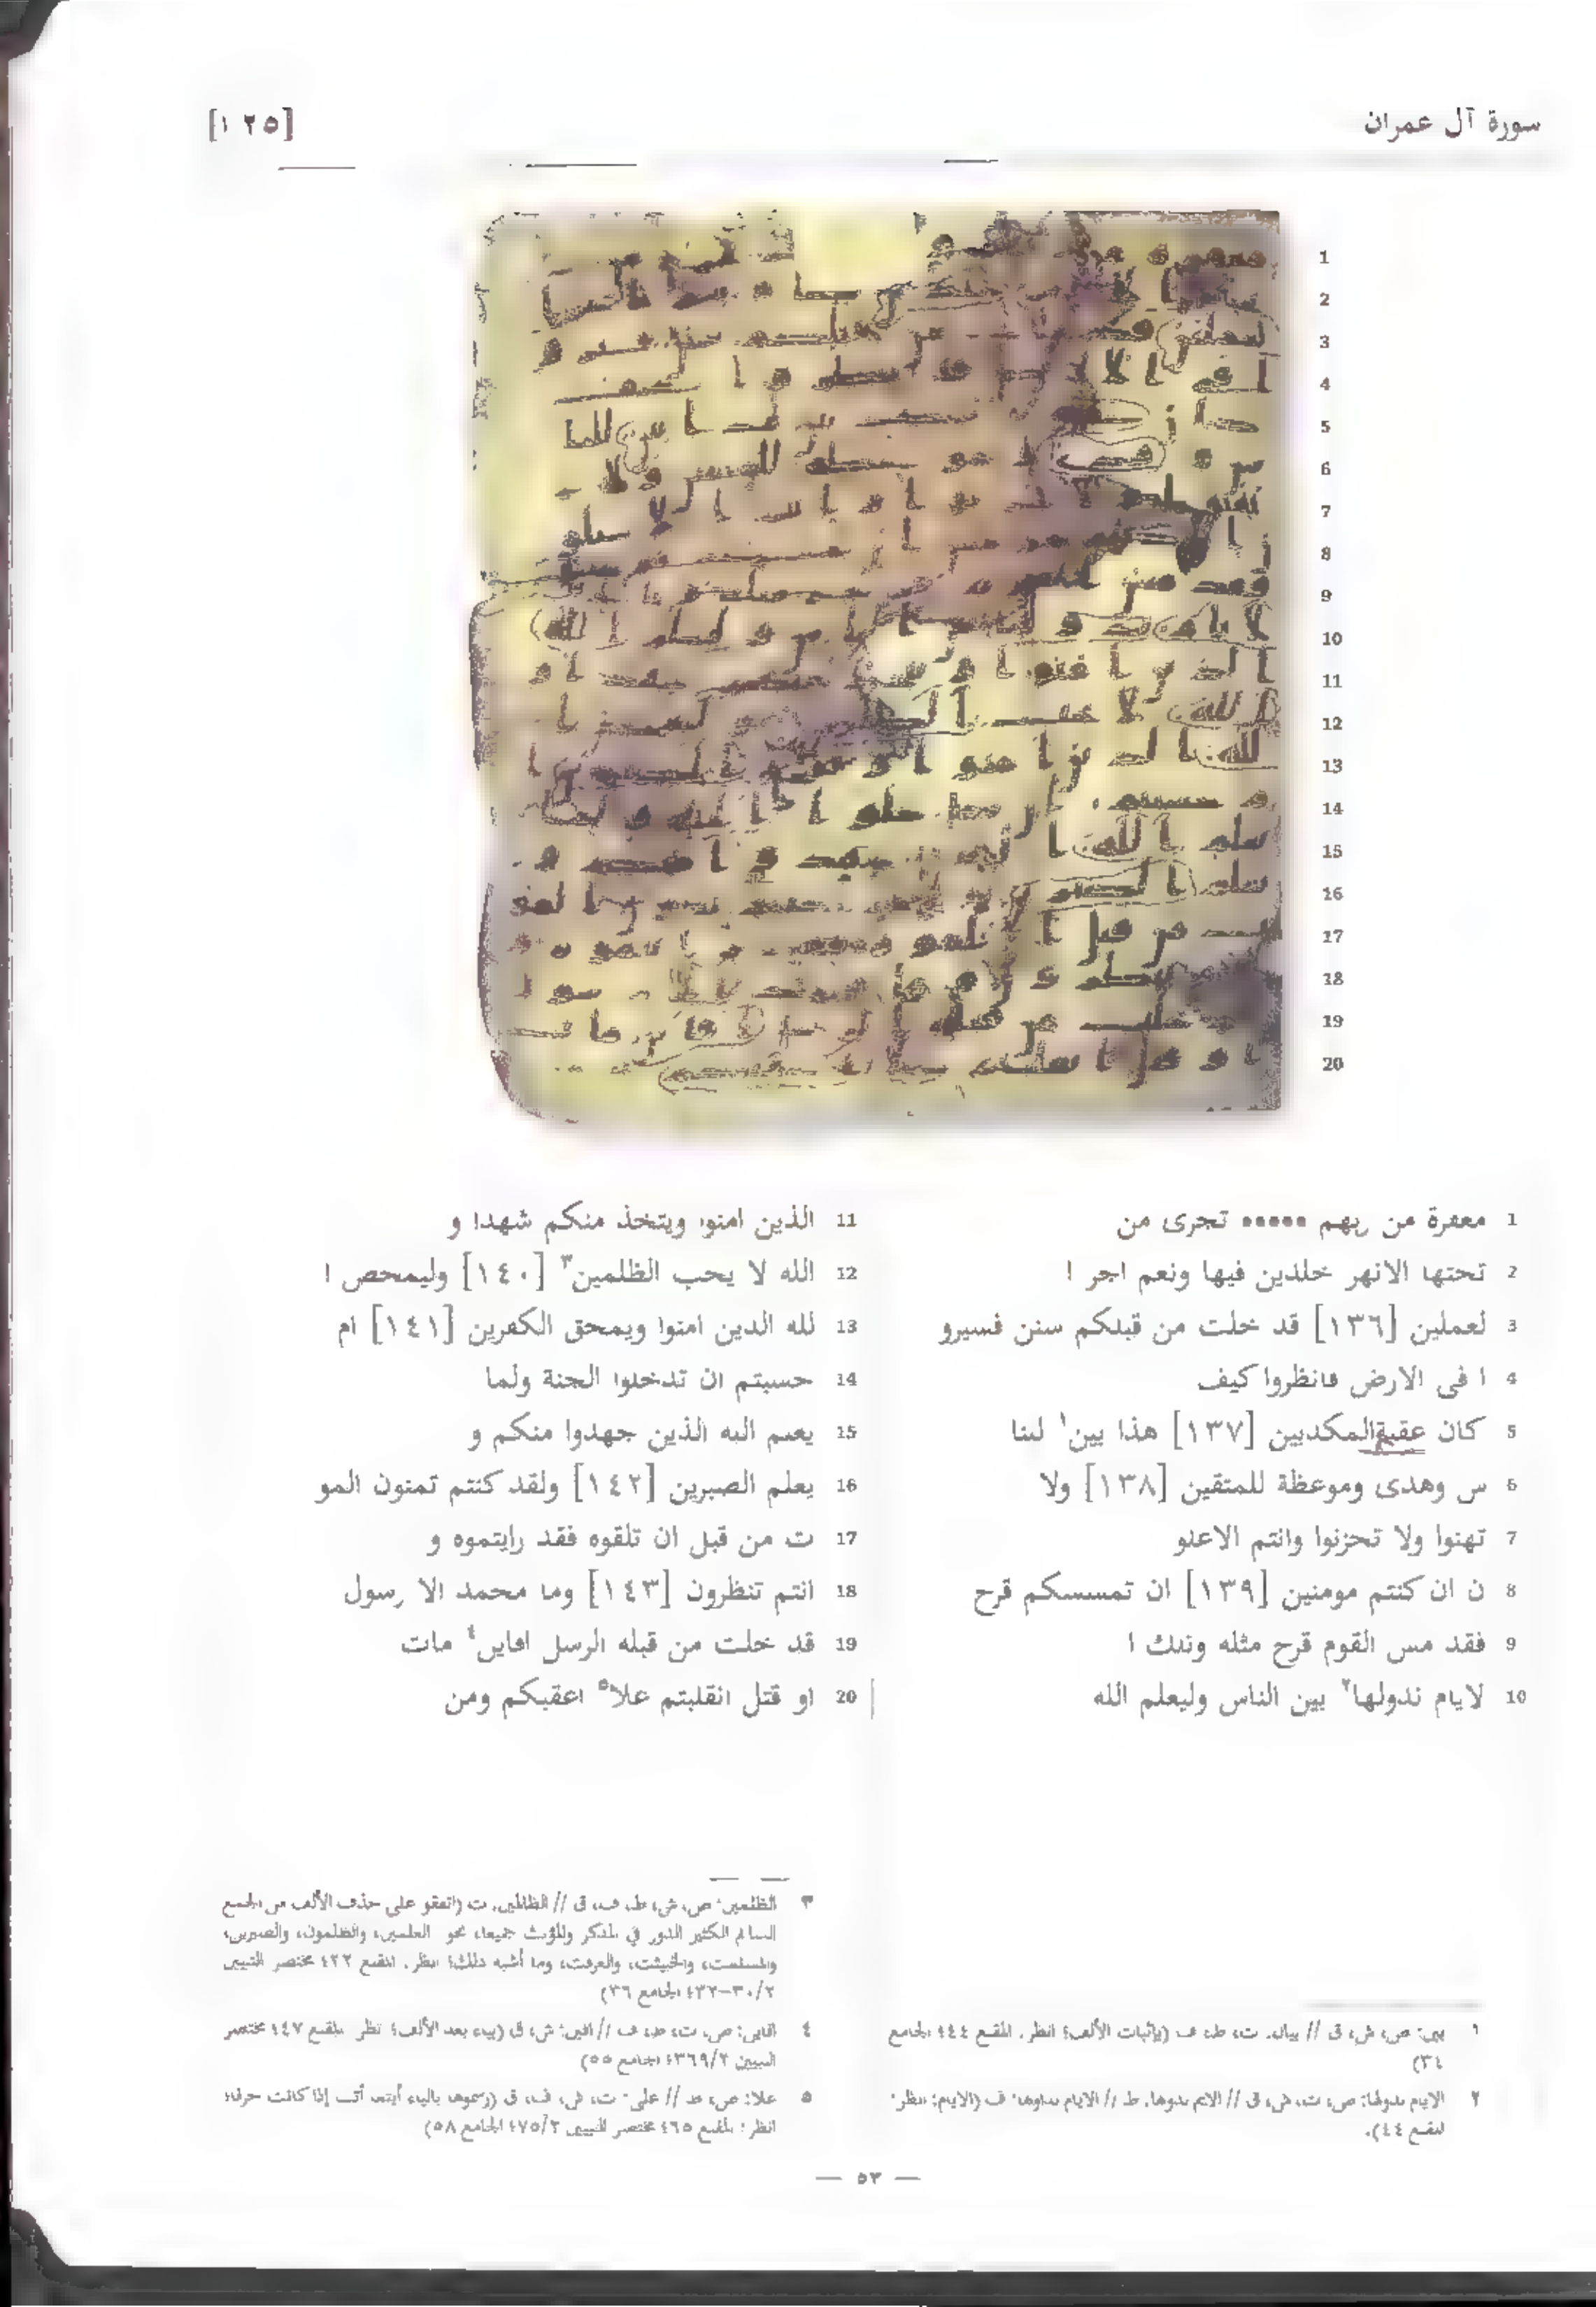 سورة آل عمران
[١٢٥]
1
2
3
4
5
6
7
8
9
10
11
12
13
14
15
16
17
18
19
20
1 معفرة من ربهم ••••• تجرى من
2 تحتها الانهر خلدين فيها ونعم اجر ا
3 لعملين [١٣٦] قد خلت من قبلكم سنن فسيرو
4 ا فى الارض فانظروا كيف
5 كان عقبة المكذبين [١٣٧] هذا بين١ للنا
6 س وهدى وموعظة للمتقين [١٣٨] ولا
7 تهنوا ولا تحزنوا وانتم الاعلو
8 ن ان كنتم مومنين [١٣٩] ان تمسسكم قرح
9 فقد مس القوم قرح مثله وتلك ا
10 لايام ندولها٢ بين الناس وليعلم الله
11 الذين امنوا ويتخذ منكم شهدا و
12 الله لا يحب الظلمين٣ [١٤٠] وليمحص ا
13 لله الذين امنوا ويمحق الكفرين [١٤١] ام
14 حسبتم ان تدخلوا الجنة ولما
15 يعلم الله الذين جهدوا منكم و
16 يعلم الصبرين [١٤٢] ولقد كنتم تمنون المو
17 ت من قبل ان تلقوه فقد رايتموه و
18 انتم تنظرون [١٤٣] وما محمد الا رسول
19 قد خلت من قبله الرسل افاين٤ مات
20 او قتل انقلبتم علا٥ اعقبكم ومن
١ بين: ص، ش، ق // بيان. ت، ط، ف (بإثبات الألف؛ انظر. المقنع ٤٤٤ الجامع
٣٤)
٢ الايام ندولها: ص، ت، ش، ق // الايم ندوها. ط // الايام نداولها: ف (الايام: انظر:
المقنع ٤٤).
٣ الظلمين: ص، ش، ط، ف، ق // الظالمين. ت (اتفقو على حذف الألف من الجمع
السالم الكثير الدور في المذكر والمؤنث جميعا، نحو العلمين، والظلمون، والصبرين،
والمسلمت، والخبيثت، والغرفت، وما أشبه ذلك؛ انظر. المقنع ٤٢٢ مختصر التبيين
٣٠/٢-٤٣٢ الجامع ٣٦)
٤ افاين: ص، ت، ط، ف // افين: ش، ق (بياء بعد الألف؛ نظر المقنع ١٤٧ مختصر
التبيين ٣٦٩/٢؛ الجامع ٥٥)
٥ علا: ص، ط // على: ت، ش، ف، ق (رسموها بالياء أينما أتت إذا كانت حرفا؛
انظر: المقنع ٤٦٥ مختصر التبيين ٧٥/٢؛ الجامع ٥٨)
— ٥٣ —